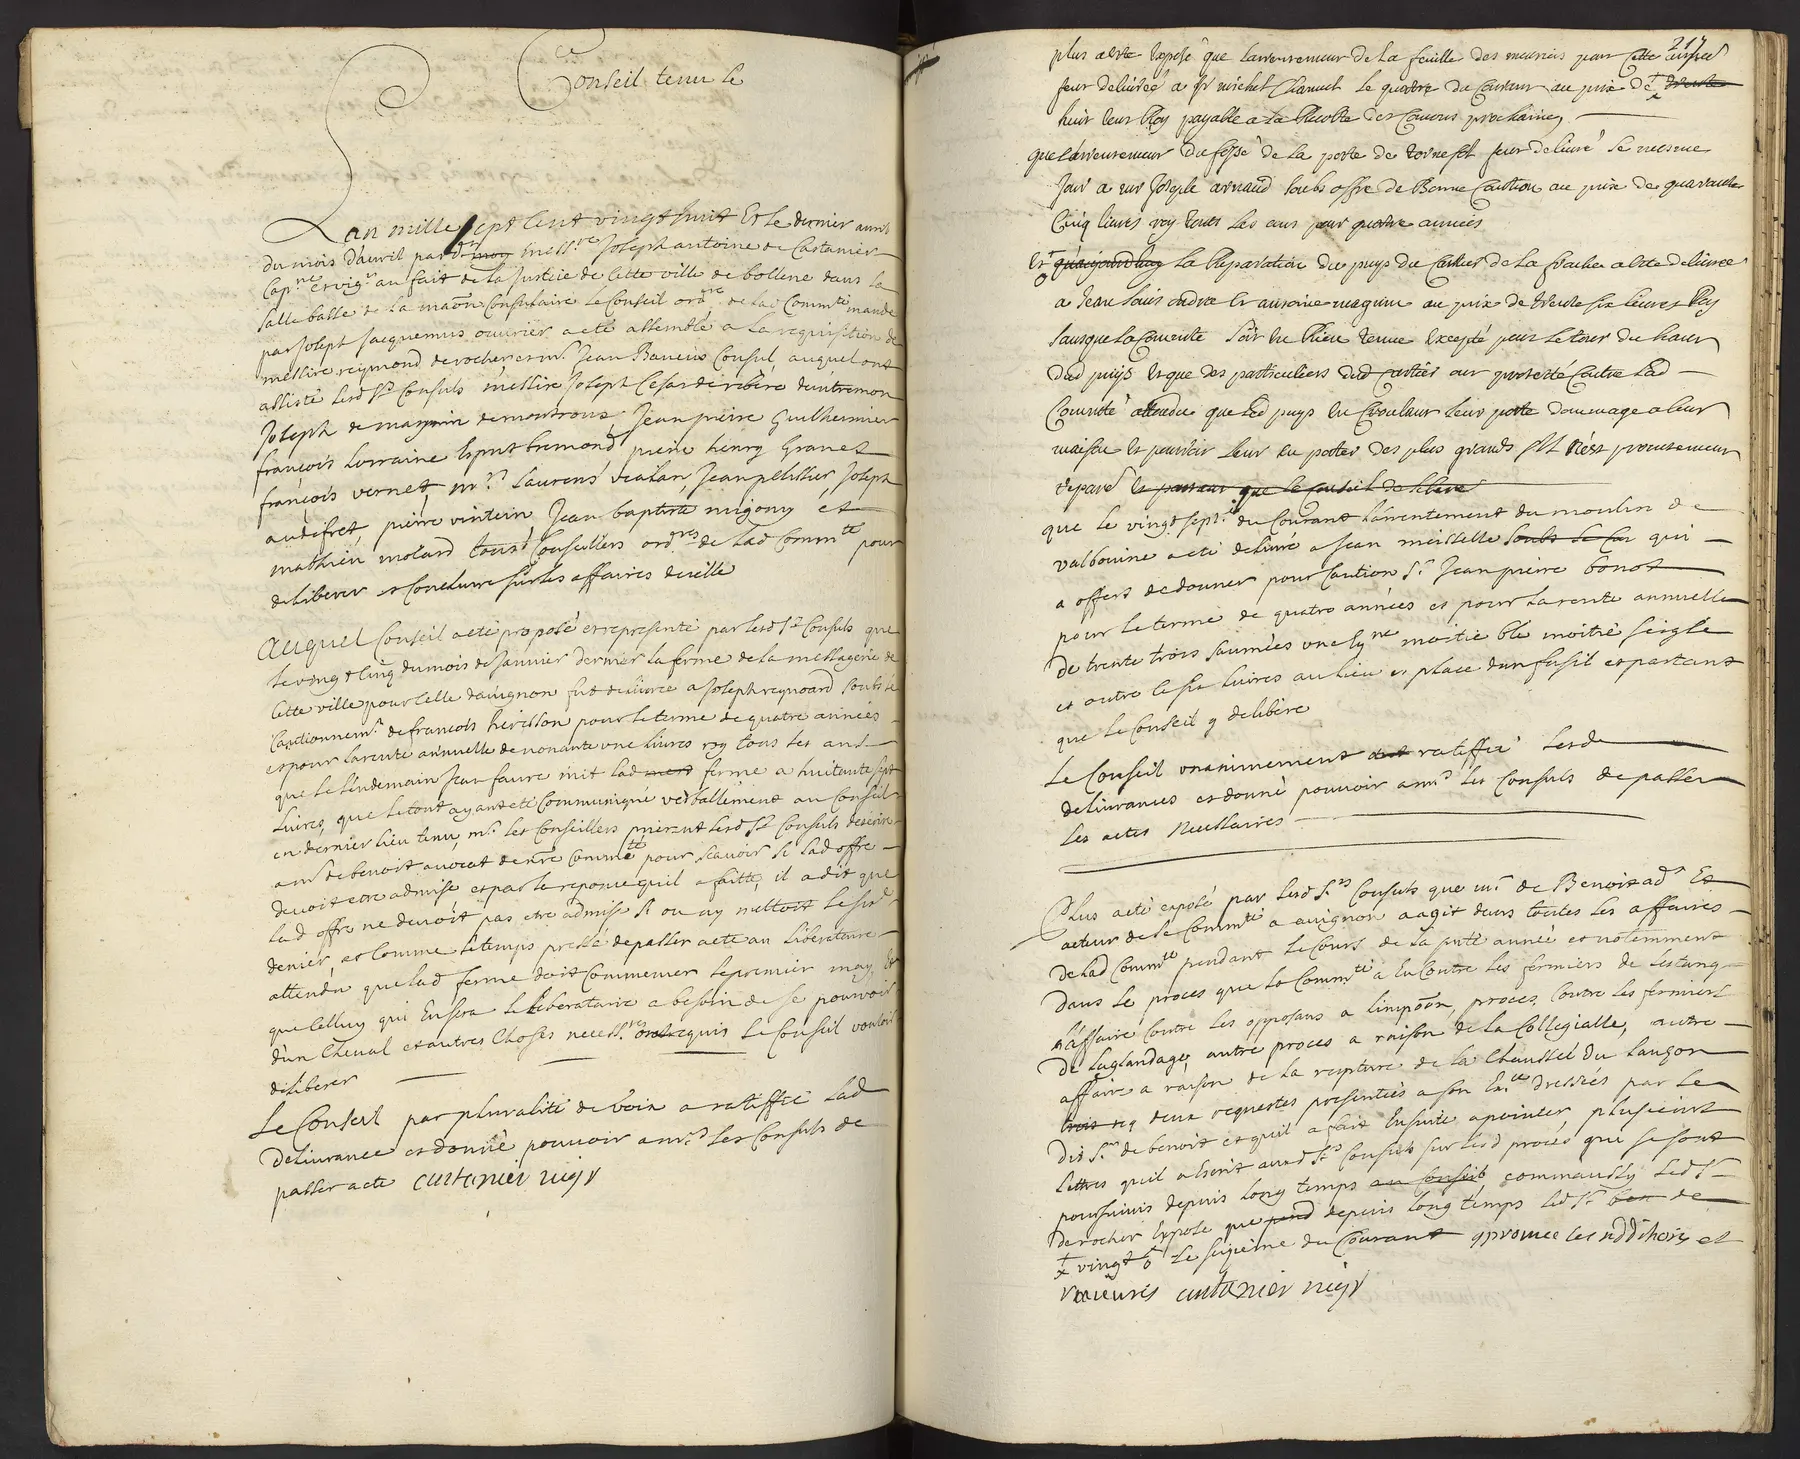 Conseil tenu le
L'an mille sept cent vingt huit et le dernier avril
du mois d'avril par d.t messre Joseph antoine de Castanier
Capne et vigr au fait de la Justice de Cette ville de bollene dans la
salle basse de la maon Consulaire le Conseil ordre de lad Commté mandé
par Joseph Jacquemus ouvrier a eté assemblé a la requisition de
messire reymond de rocher et mr Jean Consul, auquel ont
assisté lesd srs Consuls messire Joseph Cesar de ribere dentremon
Joseph de marnin de montroux, Jean pierre Guilhermier
françois Lorraine Esprit bremond pierre henry Granet
françois vernet, mre Laurens vialan, Jean pellissier Joseph
audifret, pierre vintein, Jean baptiste nugony et
mathieu molard tous Conseillers ordres de lad Commté pour
deliberer et Conclurre sur les affaires de ville
Auquel Conseil a eté proposé et representé par lesd srs Consuls que
le vingt Cinq du mois de Janvier dernier la ferme de la messagerie de
Cette ville pour celle d'avignon fut delivrée a Joseph reynoard soubs le
Cautionnemt de francois herisson pour le terme de quatre années
et pour la rente annuelle de nonante une livres roy tous les ans
que le lendemain Jean faure mit lad ferme a huitante sept
Livres, que le tout ayant eté Communiqué verballement au Conseil
en dernier lieu tenu, mrs les Conseillers prierent lesd srs Consuls decrire
a mr de benoit avocat de nre Commté pour scavoir si lad offre
devoit etre admise et par la reponce quil a faitte, il a dit que
lad offre ne devoit pas etre admise si on ny mettoit le sixe
denier, et Comme le temps presse de passer acte au liberataire
attendu que lad ferme doit Commencer le premier may, Et
que Celluy qui En sera le liberataire a besoin de se pourvoir
d'un Cheval et autres Choses necessres requis le Conseil vouloir
deliberer
Le Conseil par pluralité de voix a ratiffié lad
delivrance et donné pouvoir a mrs les Consuls de
passer acte castanier vigr
217
plus a eté Exposé que larrentement de la feuille des muriers pour Cette année
feut delivrée a sr michel Chanut le quatre du Courant au prix de + trente
huit Livres Roy payable a la Recolte des Cocons prochaine
que larrentement du fossé de la porte de tornefol feut delivré le mesme
Jour a mr Joseph arnaud soubs offre de Bonne Caution au prix de quarante
Cinq livres roy tous les ans pour quatre années
Et quaujourdhuy la Reparation du puys du Cartier de la a eté delivrée
a Jean Louis andré et antoine magnin au prix de trente six livres Roy
sans que la Commté soit En Rien tenue Excepté pour le tour du haut
dud puys et que des particuliers dud Cartier ont protesté Contre lad
Commté attendu que led puys En Croulant leur porte dommage a leur
maison et pourroit leur En porter des plus grands sil n'est promtement
reparé et partant que le Conseil delibere
que le vingt sept.e du Courant l'arrentement du moulin de
valbonine a eté delivré a Jean meisselle soubs le Cau qui
a offert de donner pour Caution sr Jean pierre bonot
pour le terme de quatre années et pour la rente annuelle
de trente trois saumées une eyne moitié blé moitié seigle
et outre ce six livres au lieu et place d'un fusil et partant
que le Conseil y delibere
Le Conseil unanimement a ratiffié lesd
delivrances et donné pouvoir a mrs les Consuls de passer
les actes necessaires
Plus a eté exposé par lesd srs Consuls que mr de Benoit adt Et
acteur de la Commté a avignon a agit dans toutes les affaires
de lad Commté pendant le Cours de la pnte année et notemment
dans le proces que la Commté a En Contre les fermiers de lestang
l'affaire Contre les opposans a l'impoon, proces Contre les fermiers
de Luglandage, autre proces a raison de la Collegialle, autre
affaire a raison de la rupture de la Chaussée du Lauzon
deux requestes presentées a son Exce dressées par le
dit sr de benoit et quil a fait Ensuite apointer plusieurs
Lettres quil a Ecrit auxd srs Consuls sur lesd procés qui se sont
poursuivis depuis long temps au Conseil led sr
de rocher Expose que pend depuis long temps led sr ben de
+ vingt 6 le seizieme du Courant aprouvé les additions et
ratures castanier vigr